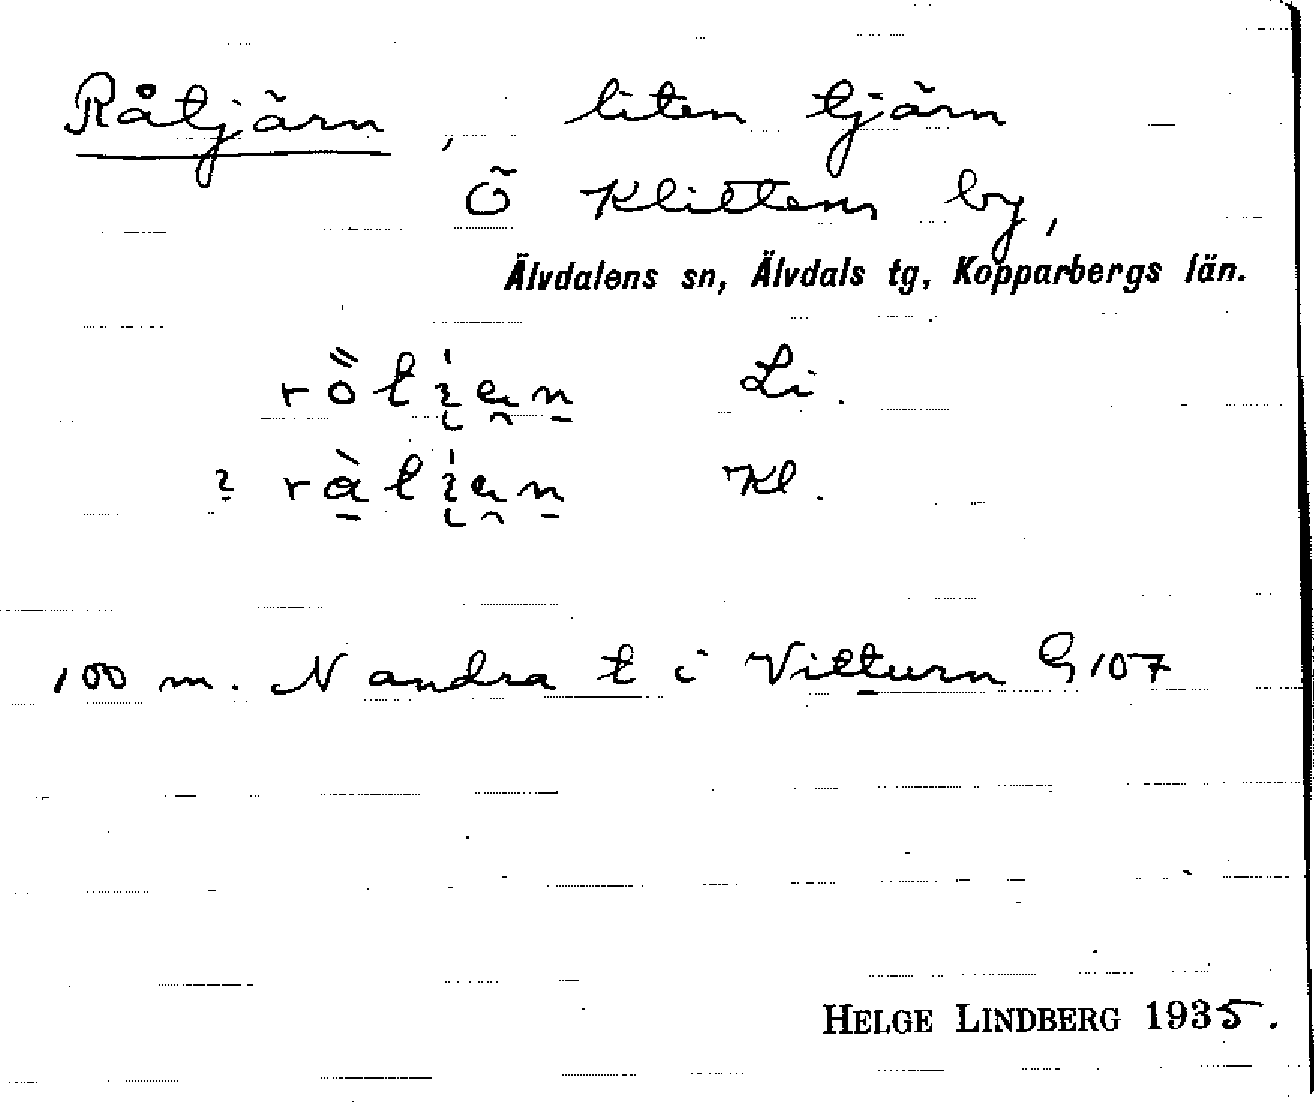 Råtjärn, liten tjärn
Ö Klittens by,
Älvdalens sn, Älvdals tg, Kopparbergs län.
Li.
Kl.
100 m. N andra t i Vitturn G 107
HELGE LINDBERG 1935.